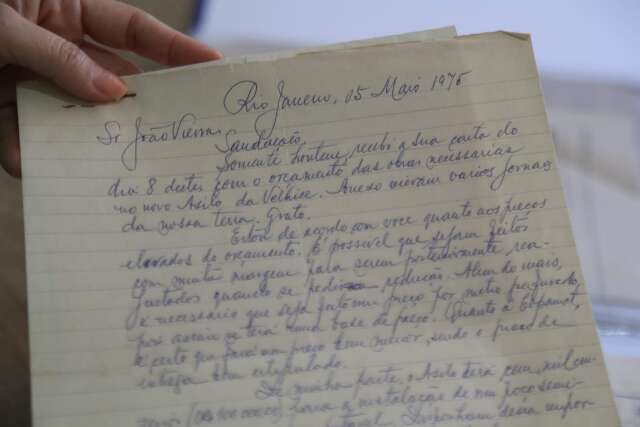 Rio Janeiro, 05 Maio 1975
Sr João Vieiras
Saudação,
Somente hontem, recebi a sua carta do
dia 8 destes com o orçamento das obras necessarias
no novo Asilo da Velhise. Anexo vieram varios jornaes
da nossa terra. Grato.
Estou de acordo com voce quanto aos preços
elevados do orçamento. É possivel que sejam feitos
com muita margem para serem posteriormente rea-
justados quando se pedir redução. Alem do mais,
é necessario que seja feito um preço por metro quadrado,
pois assim se terá uma base de preço. Quanto á
é certo que fará um preço bem menor, sendo o prazo de
entrega bem estipulado.
De minha parte, o Asilo terá cem mil cru-
zeiros para a instalação de um poço semi-